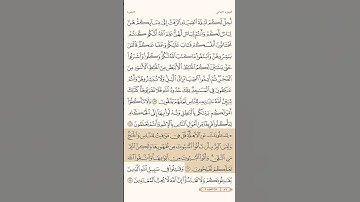 الجزء الثاني البقرة
أُحِلَّ لَكُمْ لَيْلَةَ الصِّيَامِ الرَّفَثُ إِلَىٰ نِسَائِكُمْ هُنَّ
لِبَاسٌ لَّكُمْ وَأَنتُمْ لِبَاسٌ لَّهُنَّ عَلِمَ اللَّهُ أَنَّكُمْ كُنتُمْ
تَخْتَانُونَ أَنفُسَكُمْ فَتَابَ عَلَيْكُمْ وَعَفَا عَنكُمْ فَالْـَٰٔنَ
بَٰشِرُوهُنَّ وَابْتَغُوا مَا كَتَبَ اللَّهُ لَكُمْ وَكُلُوا وَاشْرَبُوا
حَتَّىٰ يَتَبَيَّنَ لَكُمُ الْخَيْطُ الْأَبْيَضُ مِنَ الْخَيْطِ الْأَسْوَدِ مِنَ
الْفَجْرِ ثُمَّ أَتِمُّوا الصِّيَامَ إِلَى الَّيْلِ وَلَا تُبَٰشِرُوهُنَّ وَأَنتُمْ
عَٰكِفُونَ فِي الْمَسَٰجِدِ تِلْكَ حُدُودُ اللَّهِ فَلَا تَقْرَبُوهَا كَذَٰلِكَ
يُبَيِّنُ اللَّهُ ءَايَٰتِهِ لِلنَّاسِ لَعَلَّهُمْ يَتَّقُونَ ١٨٧ وَلَا تَأْكُلُوا
أَمْوَٰلَكُم بَيْنَكُم بِالْبَٰطِلِ وَتُدْلُوا بِهَا إِلَى الْحُكَّامِ
لِتَأْكُلُوا فَرِيقًا مِّنْ أَمْوَٰلِ النَّاسِ بِالْإِثْمِ وَأَنتُمْ تَعْلَمُونَ ١٨٨
يَسْـَٔلُونَكَ عَنِ الْأَهِلَّةِ قُلْ هِيَ مَوَٰقِيتُ لِلنَّاسِ وَالْحَجِّ
وَلَيْسَ الْبِرُّ بِأَن تَأْتُوا الْبُيُوتَ مِن ظُهُورِهَا وَلَٰكِنَّ الْبِرَّ
مَنِ اتَّقَىٰ وَأْتُوا الْبُيُوتَ مِنْ أَبْوَٰبِهَا وَاتَّقُوا اللَّهَ
لَعَلَّكُمْ تُفْلِحُونَ ١٨٩ وَقَٰتِلُوا فِي سَبِيلِ اللَّهِ الَّذِينَ
يُقَٰتِلُونَكُمْ وَلَا تَعْتَدُوا إِنَّ اللَّهَ لَا يُحِبُّ الْمُعْتَدِينَ ١٩٠